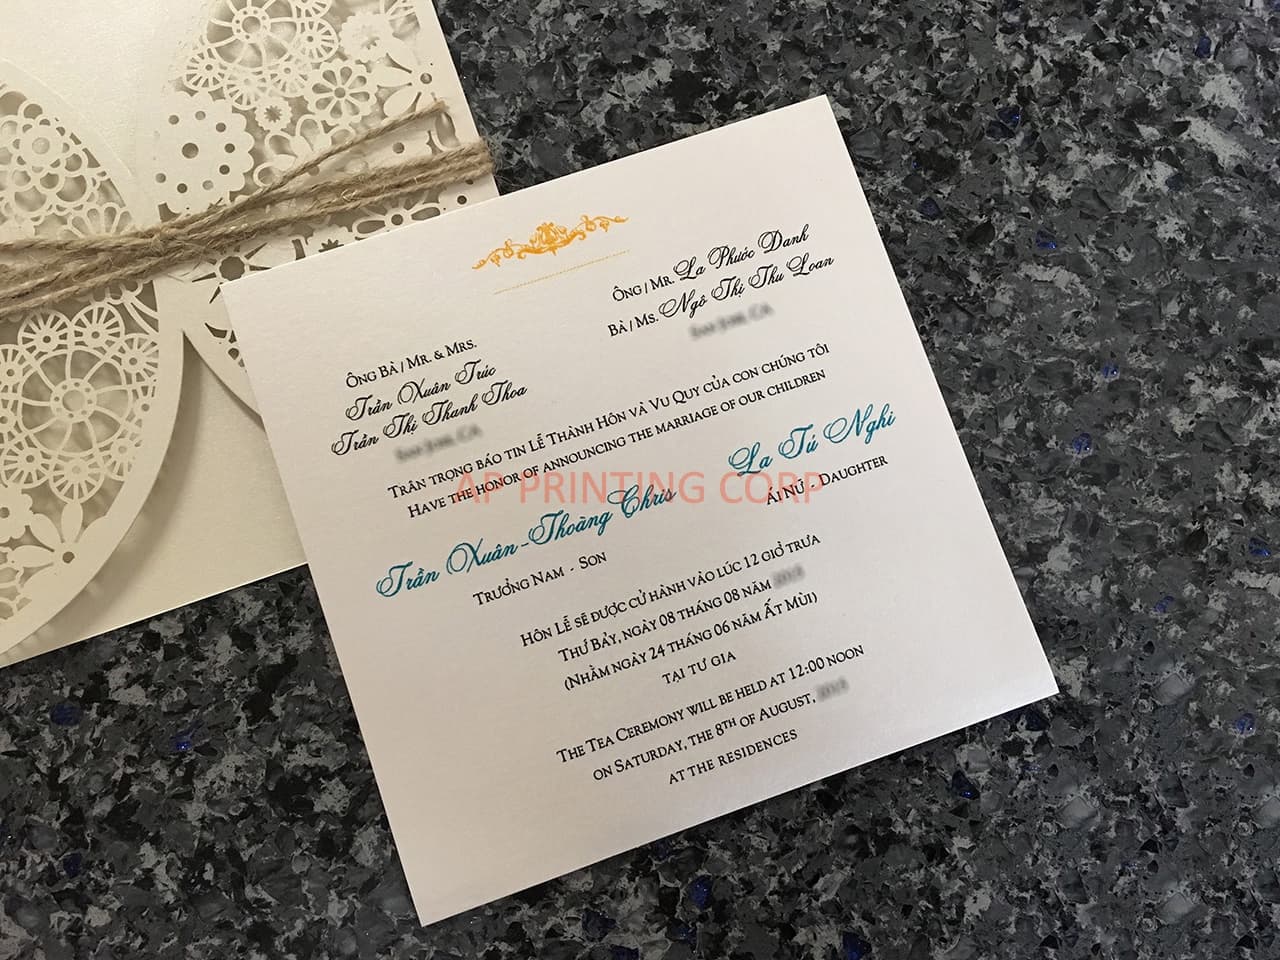 Ông Bà / Mr. & Mrs.
Trần Xuân Trúc
Trần Thị Thanh Thoa
Ông / Mr. La Phước Danh
Bà / Ms. Ngô Thị Thu Loan
Trân trọng báo tin Lễ Thành Hôn và Vu Quy của con chúng tôi
Have the honor of announcing the marriage of our children
Trần Xuân-Thoàng Chris
Trưởng Nam - Son
La Tú Nghi
Ái Nữ - Daughter
AP PRINTING CORP
Hôn Lễ sẽ được cử hành vào lúc 12 giờ trưa
Thứ Bảy, ngày 08 tháng 08 năm
(Nhằm ngày 24 tháng 06 năm Ất Mùi)
tại tư gia
The Tea Ceremony will be held at 12:00 noon
on Saturday, the 8th of August,
at the residences